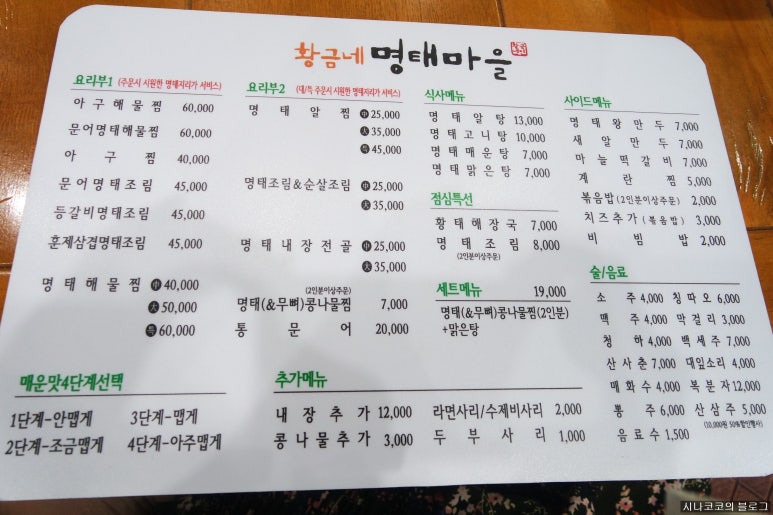 황금네 명태마을
요리부1 (주문시 시원한 명태지리가 서비스)
아구해물찜 60,000
문어명태해물찜 60,000
아구찜 40,000
문어명태조림 45,000
등갈비명태조림 45,000
훈제삼겹명태조림 45,000
명태해물찜 中 40,000
大 50,000
특 60,000
요리부2 (대/특 주문시 시원한 명태지리가 서비스)
명태알찜 中 25,000
大 35,000
특 45,000
명태조림&순살조림 中 25,000
大 35,000
명태내장전골 中 25,000
大 35,000
(2인분이상주문)
명태(&무뼈)콩나물찜 7,000
통문어 20,000
식사메뉴
명태알탕 13,000
명태고니탕 10,000
명태매운탕 7,000
명태맑은탕 7,000
점심특선
황태해장국 7,000
명태조림 8,000
(2인분이상주문)
세트메뉴 19,000
명태(&무뼈)콩나물찜(2인분)
+맑은탕
사이드메뉴
명태왕만두 7,000
새알만두 7,000
마늘떡갈비 7,000
계란찜 5,000
볶음밥(2인분이상주문) 2,000
치즈추가(볶음밥) 3,000
비빔밥 2,000
술/음료
소주 4,000 칭따오 6,000
맥주 4,000 막걸리 3,000
청하 4,000 백세주 7,000
산사춘 7,000 대일소리 4,000
매화수 4,000 복분자 12,000
통주 6,000 산삼주 5,000
(10,000원 50%할인행사)
음료수 1,500
매운맛4단계선택
1단계-안맵게 3단계-맵게
2단계-조금맵게 4단계-아주맵게
추가메뉴
내장추가 12,000 라면사리/수제비사리 2,000
콩나물추가 3,000 두부사리 1,000
시나코코의 블로그